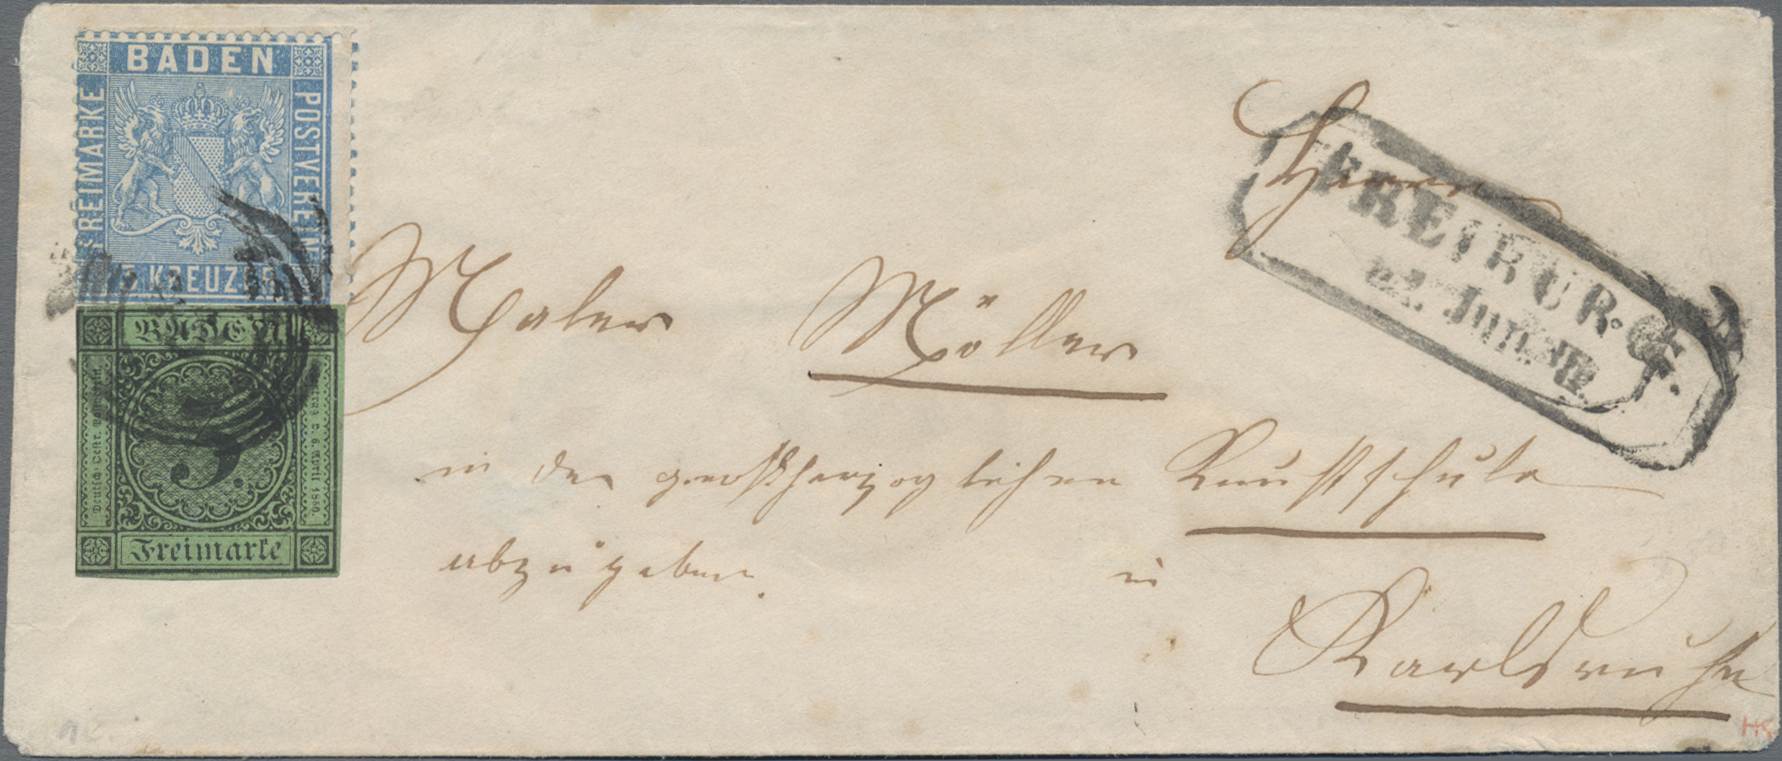 BADEN
FREIMARKE
POSTVEREIN
3 KREUZER
BADEN
Freimarke
Herrn
FREIBURG.
22. Jun
Maler Möller
in der grosherzoglichen Kunstschule
abzugeben. in
Karlsruhe
HK